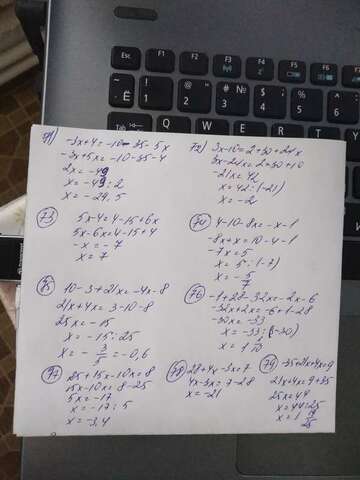 Esc
F1
F2
F3
F4
F5
F6
71) -3x+4=-10-35-5x
-3x+5x=-10-35-4
2x=-49
x=-49:2
x=-24,5
72) 3x-10=2+30+24x
3x-24x=2+30+10
-21x=42
x=42:(-21)
x=-2
73 5x-4=4-15+6x
5x-6x=4-15+4
-x=-7
x=7
74 4-10-8x=-x-1
-8x+x=10-4-1
-7x=5
x=5:(-7)
x=-5/7
75 10-3+21x=-4x-8
21x+4x=3-10-8
25x=-15
x=-15:25
x=-3/5=-0,6
76 -1+28-32x=-2x-6
-32x+2x=-6+1-28
-30x=-33
x=-33:(-30)
x=1 1/10
77 25+15x-10x=8
15x-10x=8-25
5x=-17
x=-17:5
x=-3,4
78 28+4x-3x=7
4x-3x=7-28
x=-21
79 -35+21x+4x=9
21x+4x=9+35
25x=44
x=44:25
x=1 19/25